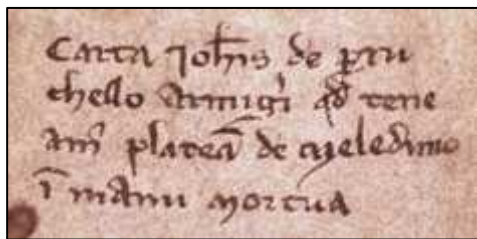 Carta Joh̅is de p̲ru
chello armig̓i qd̅ tene
am̅ plateā de
ī manu mortua